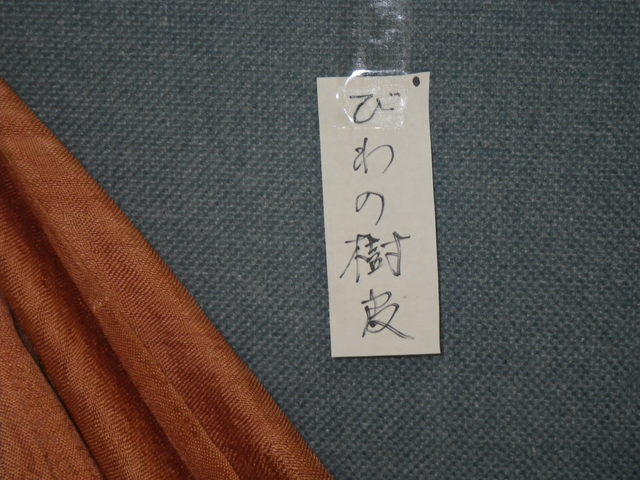 びわの樹皮